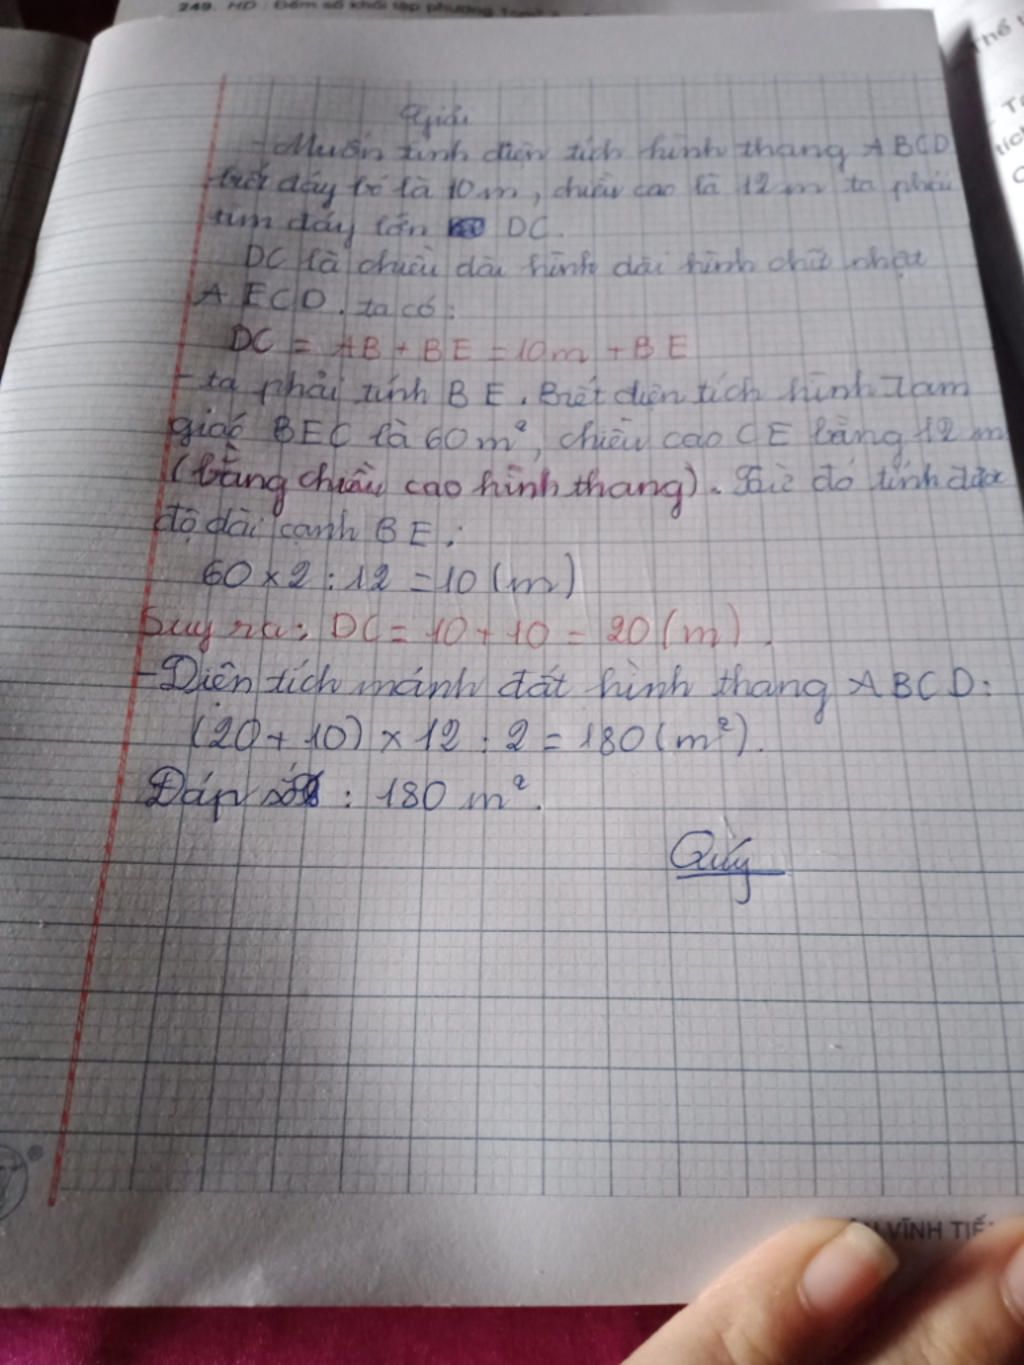 249. HD : Đếm số khối lập phương
Giải
- Muốn tính diện tích hình thang ABCD
biết đáy bé là 10m, chiều cao là 12m ta phải
tìm đáy lớn DC.
DC là chiều dài hình dài hình chữ nhật
AECD. ta có:
DC = AB + BE = 10m + BE
- ta phải tính BE. Biết diện tích hình tam
giác BEC là 60m², chiều cao CE bằng 12m
(bằng chiều cao hình thang). Từ đó tính được
độ dài cạnh BE:
60 × 2 : 12 = 10 (m)
Suy ra: DC = 10 + 10 = 20 (m).
- Diện tích mảnh đất hình thang ABCD:
(20 + 10) × 12 : 2 = 180 (m²).
Đáp số : 180 m².
Qúy
VĨNH TIẾ